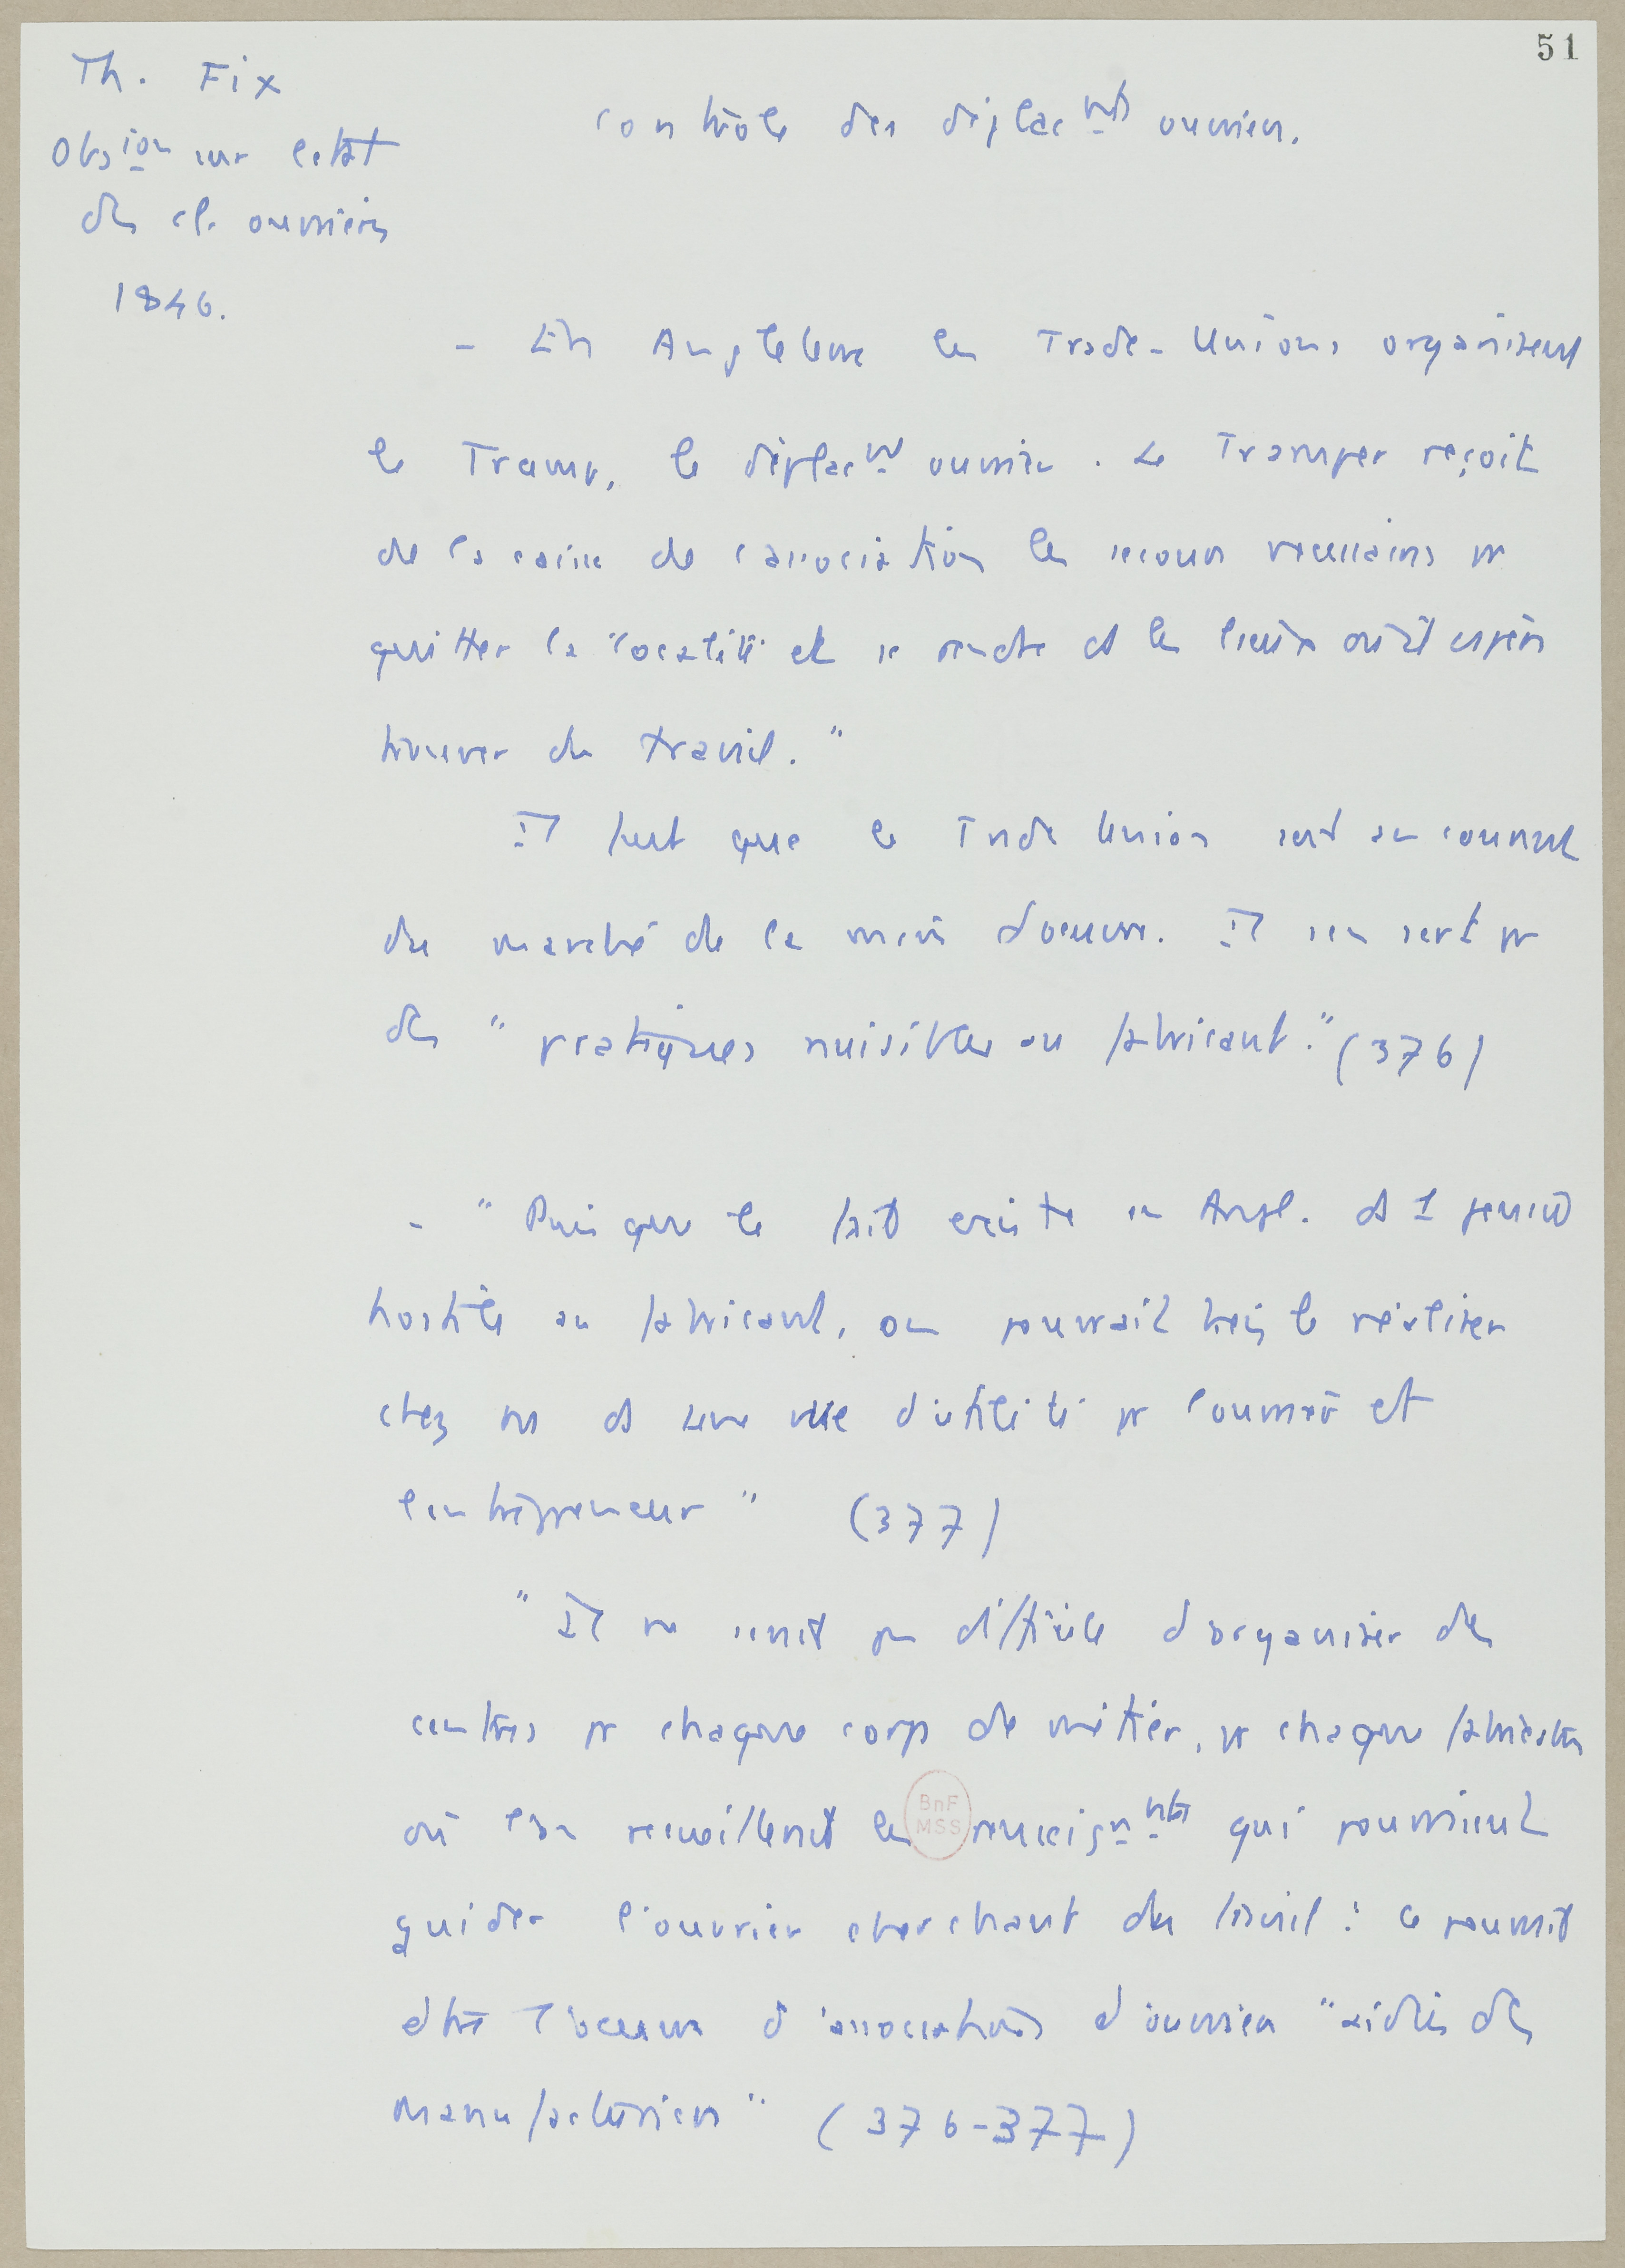 51
Th. Fix
Obs^ion sur l'état
des cl. ouvrières
1846.
Contrôle des déplac^mts ouvriers.
- En Angleterre les Trade-Unions organisent
le Tramp, le déplac^mt ouvrier. Le Tramper reçoit
de la caisse de l'association les secours nécessaires pr
quitter la "localité et se rendre ds les lieux où il espère
trouver du travail."
Il faut que la Trade Union soit au courant
du marché de la main d'oeuvre. Il s'en sert pr
des "pratiques nuisibles au fabricant." (376)
- "Puisque le fait existe en Angl. ds 1 pensée
hostile au fabricant, on pourrait bien le réaliser
chez ns ds une vue d'utilité pr l'ouvrier et
l'entrepreneur" (377)
"Il ne serait pas difficile d'organiser des
centres pr chaque corps de métier, pr chaque fabrication
où l'on recueillerait les renseign^nts qui pourraient
guider l'ouvrier cherchant du travail : ce pourrait
être l'oeuvre d'associations d'ouvriers "aidés des
manufacturiers" (376-377)
BnF
MSS